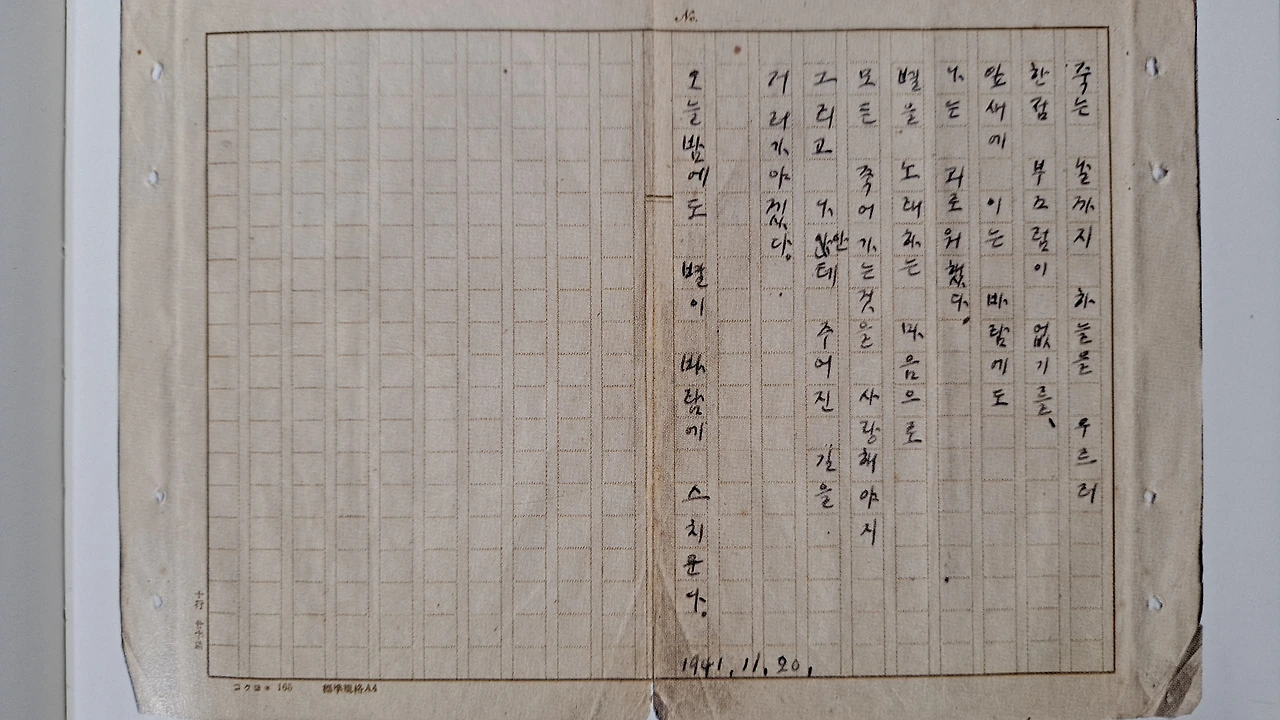 No.
죽는 날까지 하늘을 우르러
한점 부끄럼이 없기를、
잎새에 이는 바람에도
나는 괴로워했다。
별을 노래하는 마음으로
모든 죽어가는것을 사랑해야지
그리고 나안테 주어진 길을
거러가야겠다。
오늘밤에도 별이 바람에 스치운다。
1941.11.20.
コクヨ 165 標準規格A4